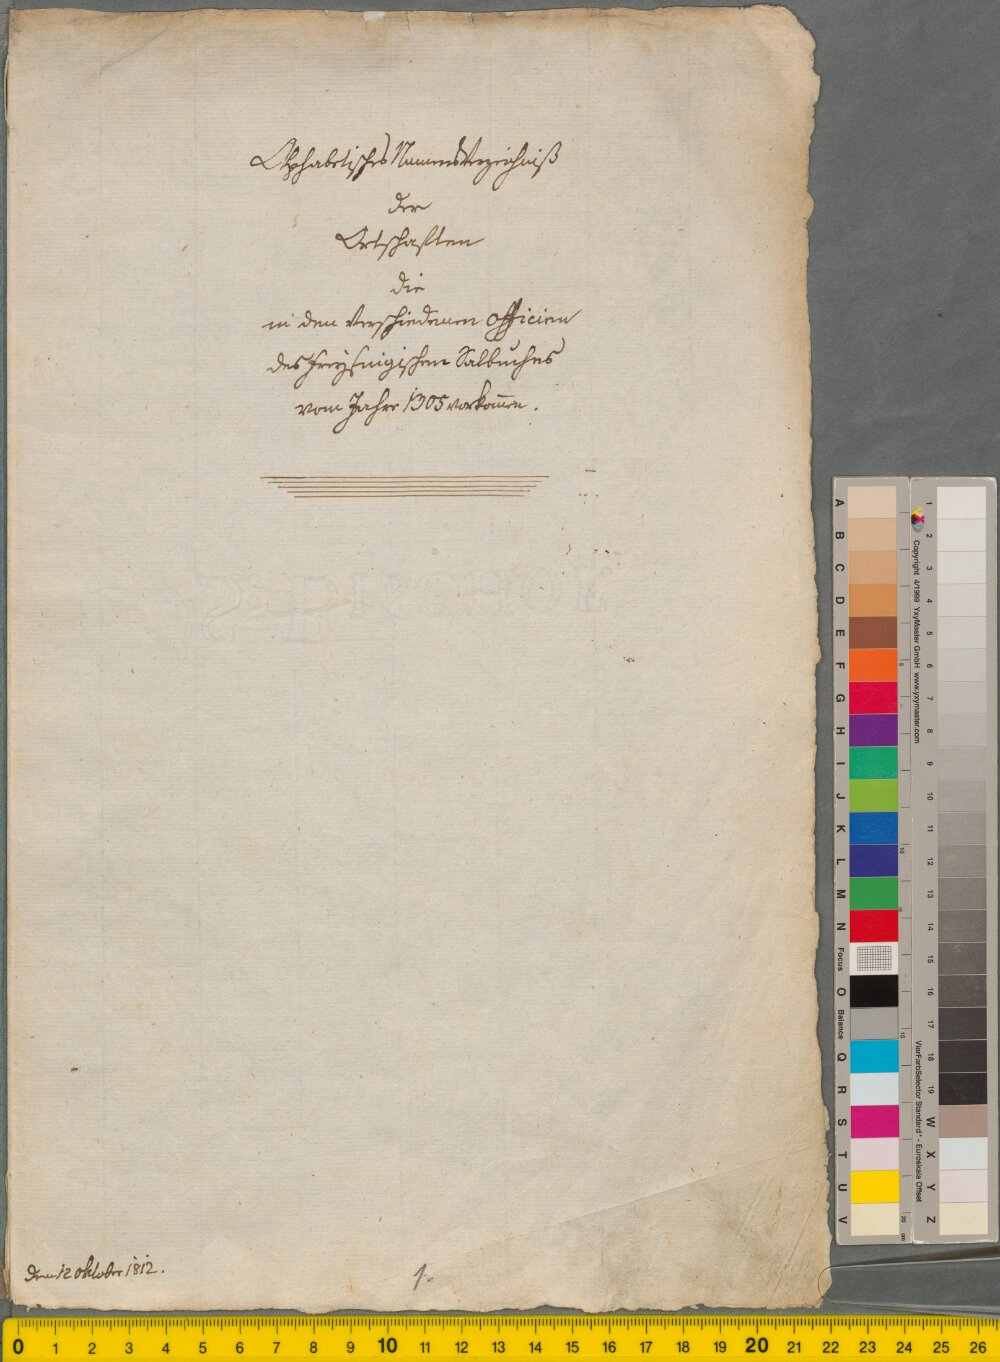 Alphabetisches Namensverzeichniß
der
Ortschaften
die
in den verschiedenen Officien
des Freysingischen Salbuches
vom Jahre 1305 vorkom̅en.
Den 12 Oktober 1812.
1.
A
B
C
D
E
F
G
H
I
J
K
L
M
N
Focus
O
Balance
Q
R
S
T
U
V
5
10
15
20 cm
Copyright 4/1999 YxyMaster GmbH www.yxymaster.com
VierFarbSelector Standard* - Euroskala Offset
1
2
3
4
5
6
7
8
9
10
11
12
13
14
15
16
17
18
19
W
X
Y
Z
0 1 2 3 4 5 6 7 8 9 10 11 12 13 14 15 16 17 18 19 20 21 22 23 24 25 26